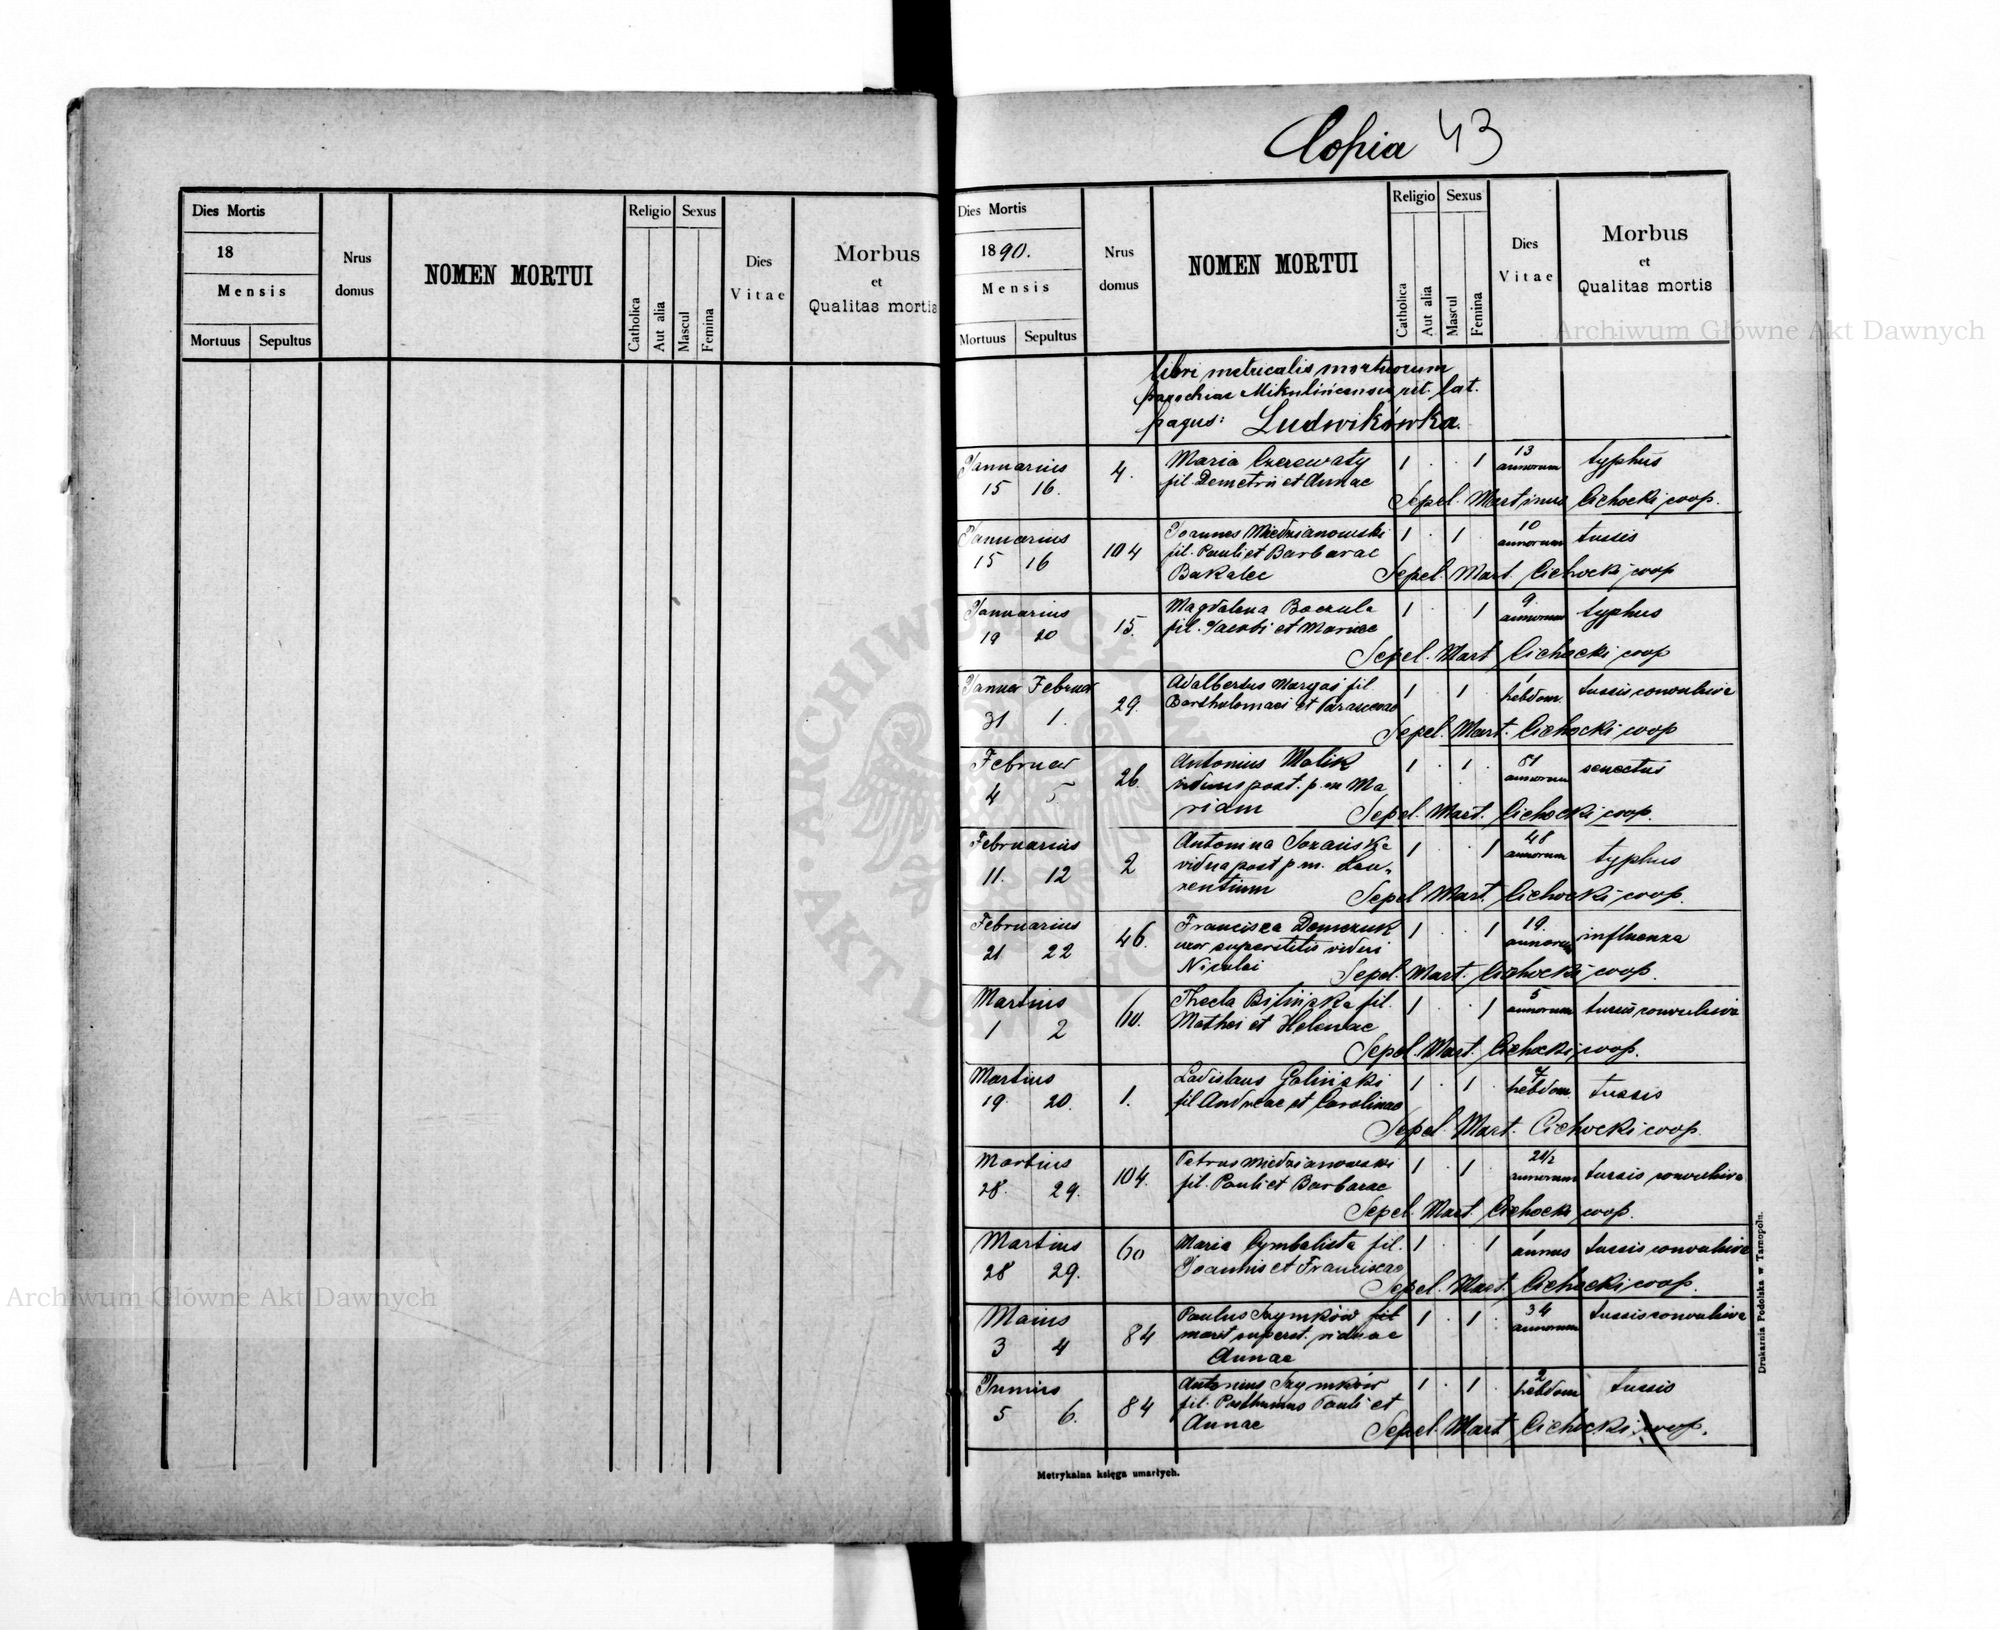 Copia 43
Dies Mortis
18
Mensis
Mortuus Sepultus
Nrus
domus
NOMEN MORTUI
Religio
Catholica
Aut alia
Sexus
Mascul
Femina
Dies
Vitae
Morbus
et
Qualitas mortis
Dies Mortis
1890.
Mensis
Mortuus Sepultus
Nrus
domus
NOMEN MORTUI
Religio
Catholica
Aut alia
Sexus
Mascul
Femina
Dies
Vitae
Morbus
et
Qualitas mortis
libri metricalis mortuorum
parochiae Mikulińcensis rit. lat.
pagus: Ludwikówka.
Januarius 4. Maria Czerewaty 1 . . 1 13 annorum typhus
15 16. fil. Demetrii et Annae
Sepel. Martinus Cichocki coop.
Januarius 104 Joannes Miedzianowski 1 . 1 . 10 annorum tussis
15 16 fil. Pauli et Barbarae
Bakalec Sepel. Mart. Cichocki coop
Januarius 15. Magdalena 1 . . 1 9 annorum typhus
19 20 fil. Jacobi et Mariae
Sepel. Mart Cichocki coop
Januar Februar 29. Adalbertus Margas fil 1 . 1 . 1 hebdom. tussis convulsiva
31 1. Bartholomaei et Parascevae
Sepel. Mart. Cichocki coop
Februar 26. Antonius Malik 1 . 1 . 81 annorum senectus
4 5. viduus post. p. m Ma
riam Sepel. Mart. Cichocki coop.
Februarius 2 Antonina 1 . . 1 48 annorum typhus
11. 12 vidua post p. m. Lau-
rentium Sepel Mart. Cichocki coop.
Februarius 46. Francisca Demczuk 1 . . 1 19. annorum influenza
21 22 uxor superstitis vidui
Nicolai Sepel. Mart. Cichocki coop.
Martius 60. Thecla Bilińska fil. 1 . . 1 5 annorum tussis convulsiva
1 2 Mathei et Helenae
Sepel. Mart. Cichocki coop.
Martius 1. Ladislaus Galiński 1 . 1 . 7 hebdom. tussis
19 20. fil Andreae et Carolinae
Sepel. Mart. Cichocki coop.
Martius 104. Petrus Miedzianowski 1 . 1 . 2 1/2 annorum tussis convulsiva
28. 29. fil. Pauli et Barbarae
Sepel. Mart. Cichocki coop.
Martius 60 Maria Cymbalista fil. 1 . . 1 1 annus tussis convulsiva
28 29. Joannis et Franciscae
Sepel. Mart. Cichocki coop.
Maius 84 Paulus Szymków fil 1 . 1 . 34 annorum tussis convulsiva
3 4 marit superst. viduae
Annae
Junius 84 Antonius Szymków 1 . 1 . 2 hebdom tussis
5 6. fil. Posthumus Pauli et
Annae Sepel. Mart Cichocki coop.
Metrykalna księga umarłych.
Drukarnia Podolska w Tarnopolu.
Archiwum Główne Akt Dawnych
Archiwum Główne Akt Dawnych
ARCHIWUM GŁÓWNE AKT DAWNYCH